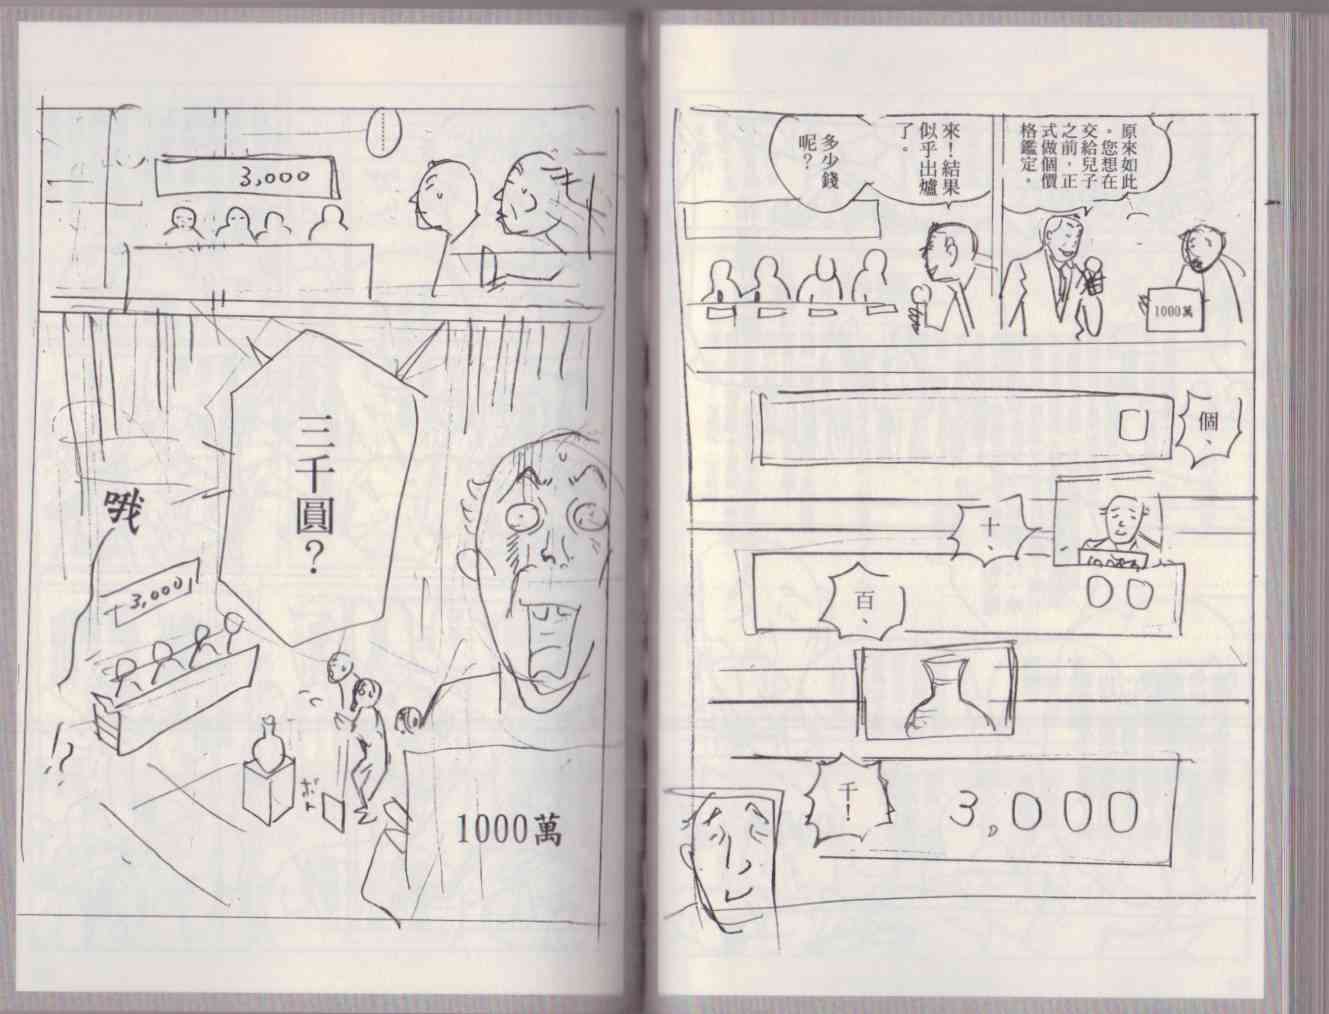 原來如此
。您想在
交給兒子
之前，正
式做個價
格鑑定。
1000萬
來！結果
似乎出爐
了。
多少錢
呢？
個、
十、
百、
千！
0
00
3,000
…………
3,000
三千圓？
哦
3,000
!?
ボト
1000萬